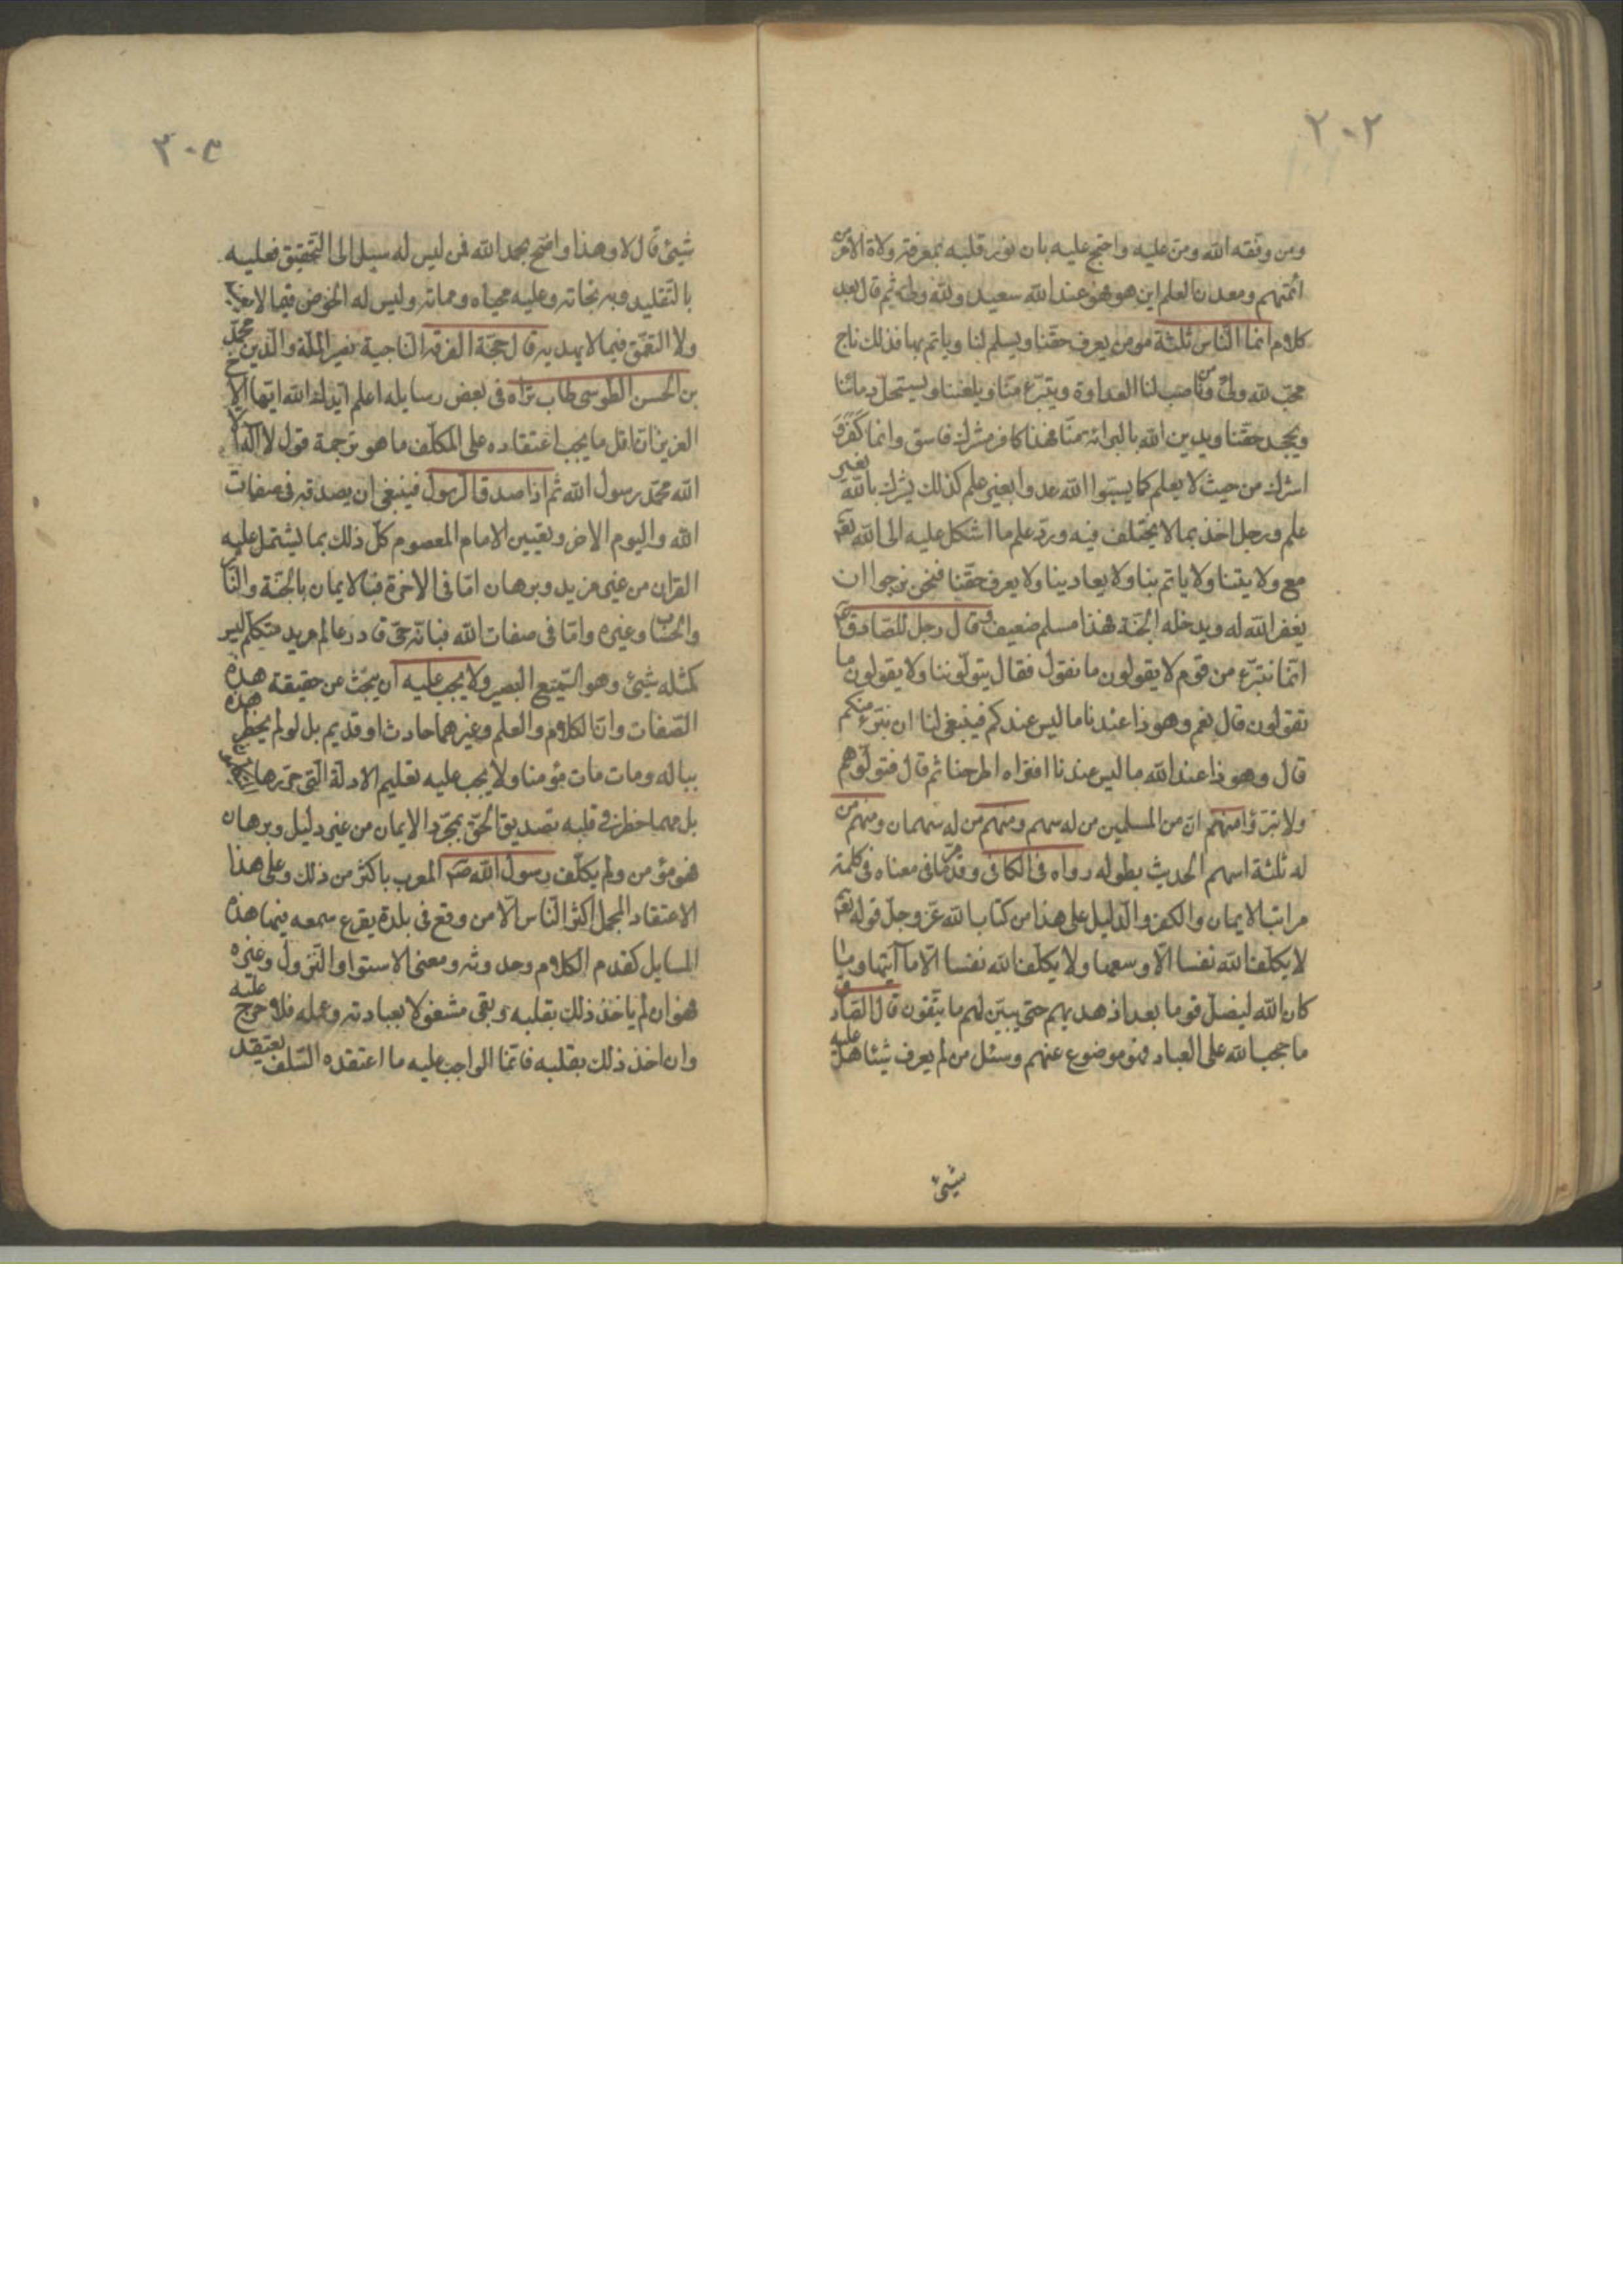 ٢٠٢
ومن وفقه الله ومن عليه واحتج عليه بان نور قلبه بمعرفة ولاة الامر من
ائمتهم ومعدن العلم اين هو فهو عند الله سعيد ولله ولى ثم قال بعد
كلام انما الناس ثلثة مؤمن يعرف حقنا ويسلم لنا وياتم بنا فذلك ناج
محب لله ولى وناصب لنا العداوة ويتبرء منا ويلعننا ويستحل دمائنا
ويجحد حقنا ويدين الله بالبرائة منا فهذا كافر مشرك فاسق وانما كفر و
اشرك من حيث لا يعلم كما يسبوا الله عدوا بغير علم كذلك يشرك بالله بغير
علم ورجل اخذ بما لا يختلف فيه ورد علم ما اشكل عليه الى الله تعه
مع ولايتنا ولا ياتم بنا ولا يعادينا ولا يعرف حقنا فنحن نرجوا ان
يغفر الله له ويدخله الجنة فهذا مسلم ضعيف وقال رجل للصادق ع
انا نتبرء من قوم لا يقولون ما نقول فقال يتولوننا ولا يقولون ما
تقولون قال نعم وهوذا عندنا ما ليس عندكم فينبغى لنا ان نتبرء منكم
قال وهوذا عند الله ما ليس عندنا افتراه اطرحنا ثم قال فتولوهم
ولا تبرؤا منهم ان من المسلمين من له سهم ومنهم من له سهمان ومنهم من
له ثلثة اسهم الحديث بطوله رواه فى الكافى وقد مر ما فى معناه فى كلمة
مراتب الايمان والكفر والدليل على هذا من كتاب الله عز وجل قوله تعه
لا يكلف الله نفسا الا وسعها ولا يكلف الله نفسا الا ما آتيها وما
كان الله ليضل قوما بعد اذ هديهم حتى يبين لهم ما يتقون قال الصادق
ما حجب الله على العباد فهو موضوع عنهم وسئل من لم يعرف شيئا هل عليه
شيئ
٢٠٣
شيئ قال لا وهذا واضح بحمد الله فمن ليس له سبيل الى التحقيق فعليه
بالتقليد وبه نجاته وعليه محياه ومماته وليس له الخوض فيما لا يعنيه
ولا التعمق فيما لا يهديه قال حجة الفرقة الناجية نصير الملة والدين محمد
بن الحسن الطوسى طاب ثراه فى بعض رسايله اعلم ايدك الله ايها الاخ
العزيز ان اقل ما يجب اعتقاده على المكلف ما هو ترجمة قول لا اله الا
الله محمد رسول الله ثم اذا صدق الرسول فينبغى ان يصدقه فى صفات
الله واليوم الاخر وتعيين الامام المعصوم كل ذلك بما يشتمل عليه
القران من غير مزيد وبرهان اما فى الاخرة فبالايمان بالجنة والنار
والحساب وغيره واما فى صفات الله فبانه حى قادر عالم مريد متكلم ليس
كمثله شيئ وهو السميع البصير ولا يجب عليه ان يبحث عن حقيقة هذه
الصفات وان الكلام والعلم وغيرهما حادث او قديم بل لو لم يخطر هذه
بباله ومات مات مؤمنا ولا يجب عليه تعليم الادلة التى حررها المتكلمون
بل مهما خطر فى قلبه تصديق الحق بمجرد الايمان من غير دليل وبرهان
فهو مؤمن ولم يكلف رسول الله صم العرب باكثر من ذلك وعلى هذا
الاعتقاد المجمل اكثر الناس الا من وقع فى بلدة يقرع سمعه فيها هذه
المسايل كقدم الكلام وحدوثه ومعنى الاستوا والنزول وغيره
فهو ان لم ياخذ ذلك بقلبه وبقى مشغولا بعبادته وعمله فلا حرج عليه
وان اخذ ذلك بقلبه فانما الواجب عليه ما اعتقده السلف يعتقد